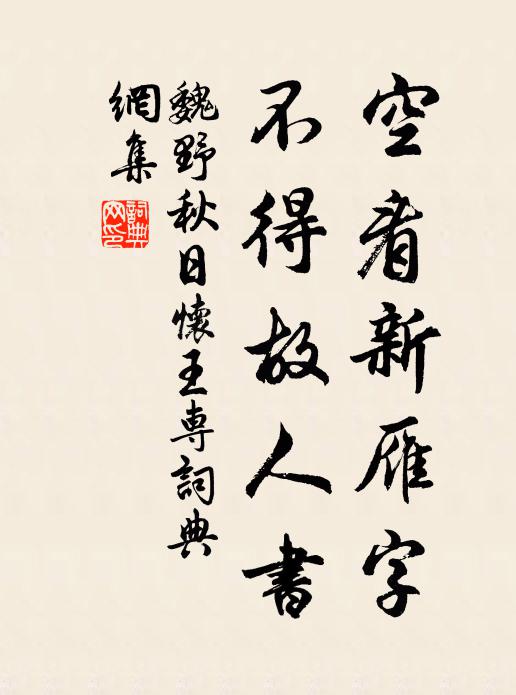 空看新雁字
不得故人書
魏野秋日懷王専詞典
網集
詞典網印